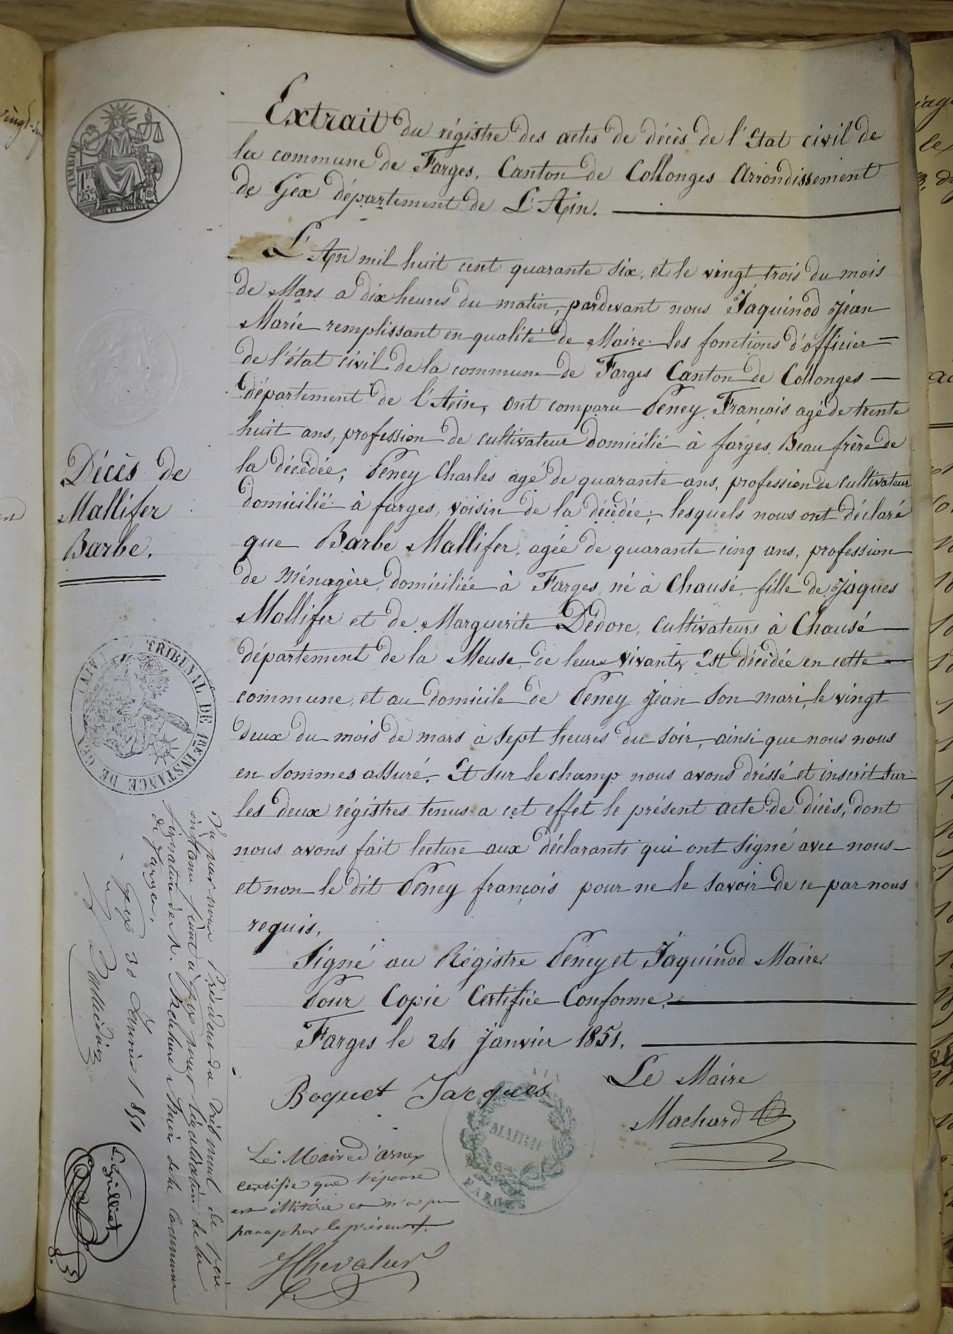 Extrait du régistre des actes de décès de l'Etat civil de
la commune de Farges, Canton de Collonges Arrondissement
de Gex département de L'Ain.
L'An mil huit cent quarante six, et le vingt trois du mois
de Mars a dix heures du matin, pardevant nous Jaquinod Jean
Marie remplissant en qualité de Maire les fonctions d'officier
de l'état civil de la commune de Farges Canton de Collonges
département de l'Ain, ont comparu Peney François agé de trente
huit ans, profession de cultivateur domicilié à farges, Beau frère de
la décédée; Peney Charles agé de quarante ans, profession de cultivateur
domicilié à farges, voisin de la décédée; lesquels nous ont déclaré
que Barbe Mallifer, agée de quarante cinq ans, profession
de Ménagère, domiciliée à Farges, né à Chausé fille de Jaques
Mollifer et de Marguerite Dedore, cultivateurs à Chausé
département de la Meuse de leur vivant, Est décédée en cette
commune, et au domicile de Peney Jean son mari, le vingt
deux du mois de mars à sept heures du soir, ainsi que nous nous
en sommes assuré. Et sur le champ nous avons dréssé et inscrit sur
les deux régistres tenus a cet effet le présent acte de décès, dont
nous avons fait lecture aux déclarants qui ont signé avec nous
et non le dit Peney françois pour ne le savoir de ce par nous
requis.
Signé au Régistre Peney et Jaquinod Maire
Pour Copie Certifiée Conforme.
Farges le 24 Janvier 1851.
Le Maire
Boquet Jacques
Machard
MAIRIE
FARGES
Le Maire d'arnex
certifie que l'épouse
est illitérée et n'a pu
parapher le présent.
JChevalier
TIMBRE
Décès de
Mallifer
Barbe.
TRIBUNAL DE 1RE INSTANCE DE GEX (AIN)
Vu par nous Président du Tribunal de 1ère
instance séant à Gex pour légalisation de la
signature de M. Machard Maire de la Commune
de Farges.
Gex 30 Janvier 1851